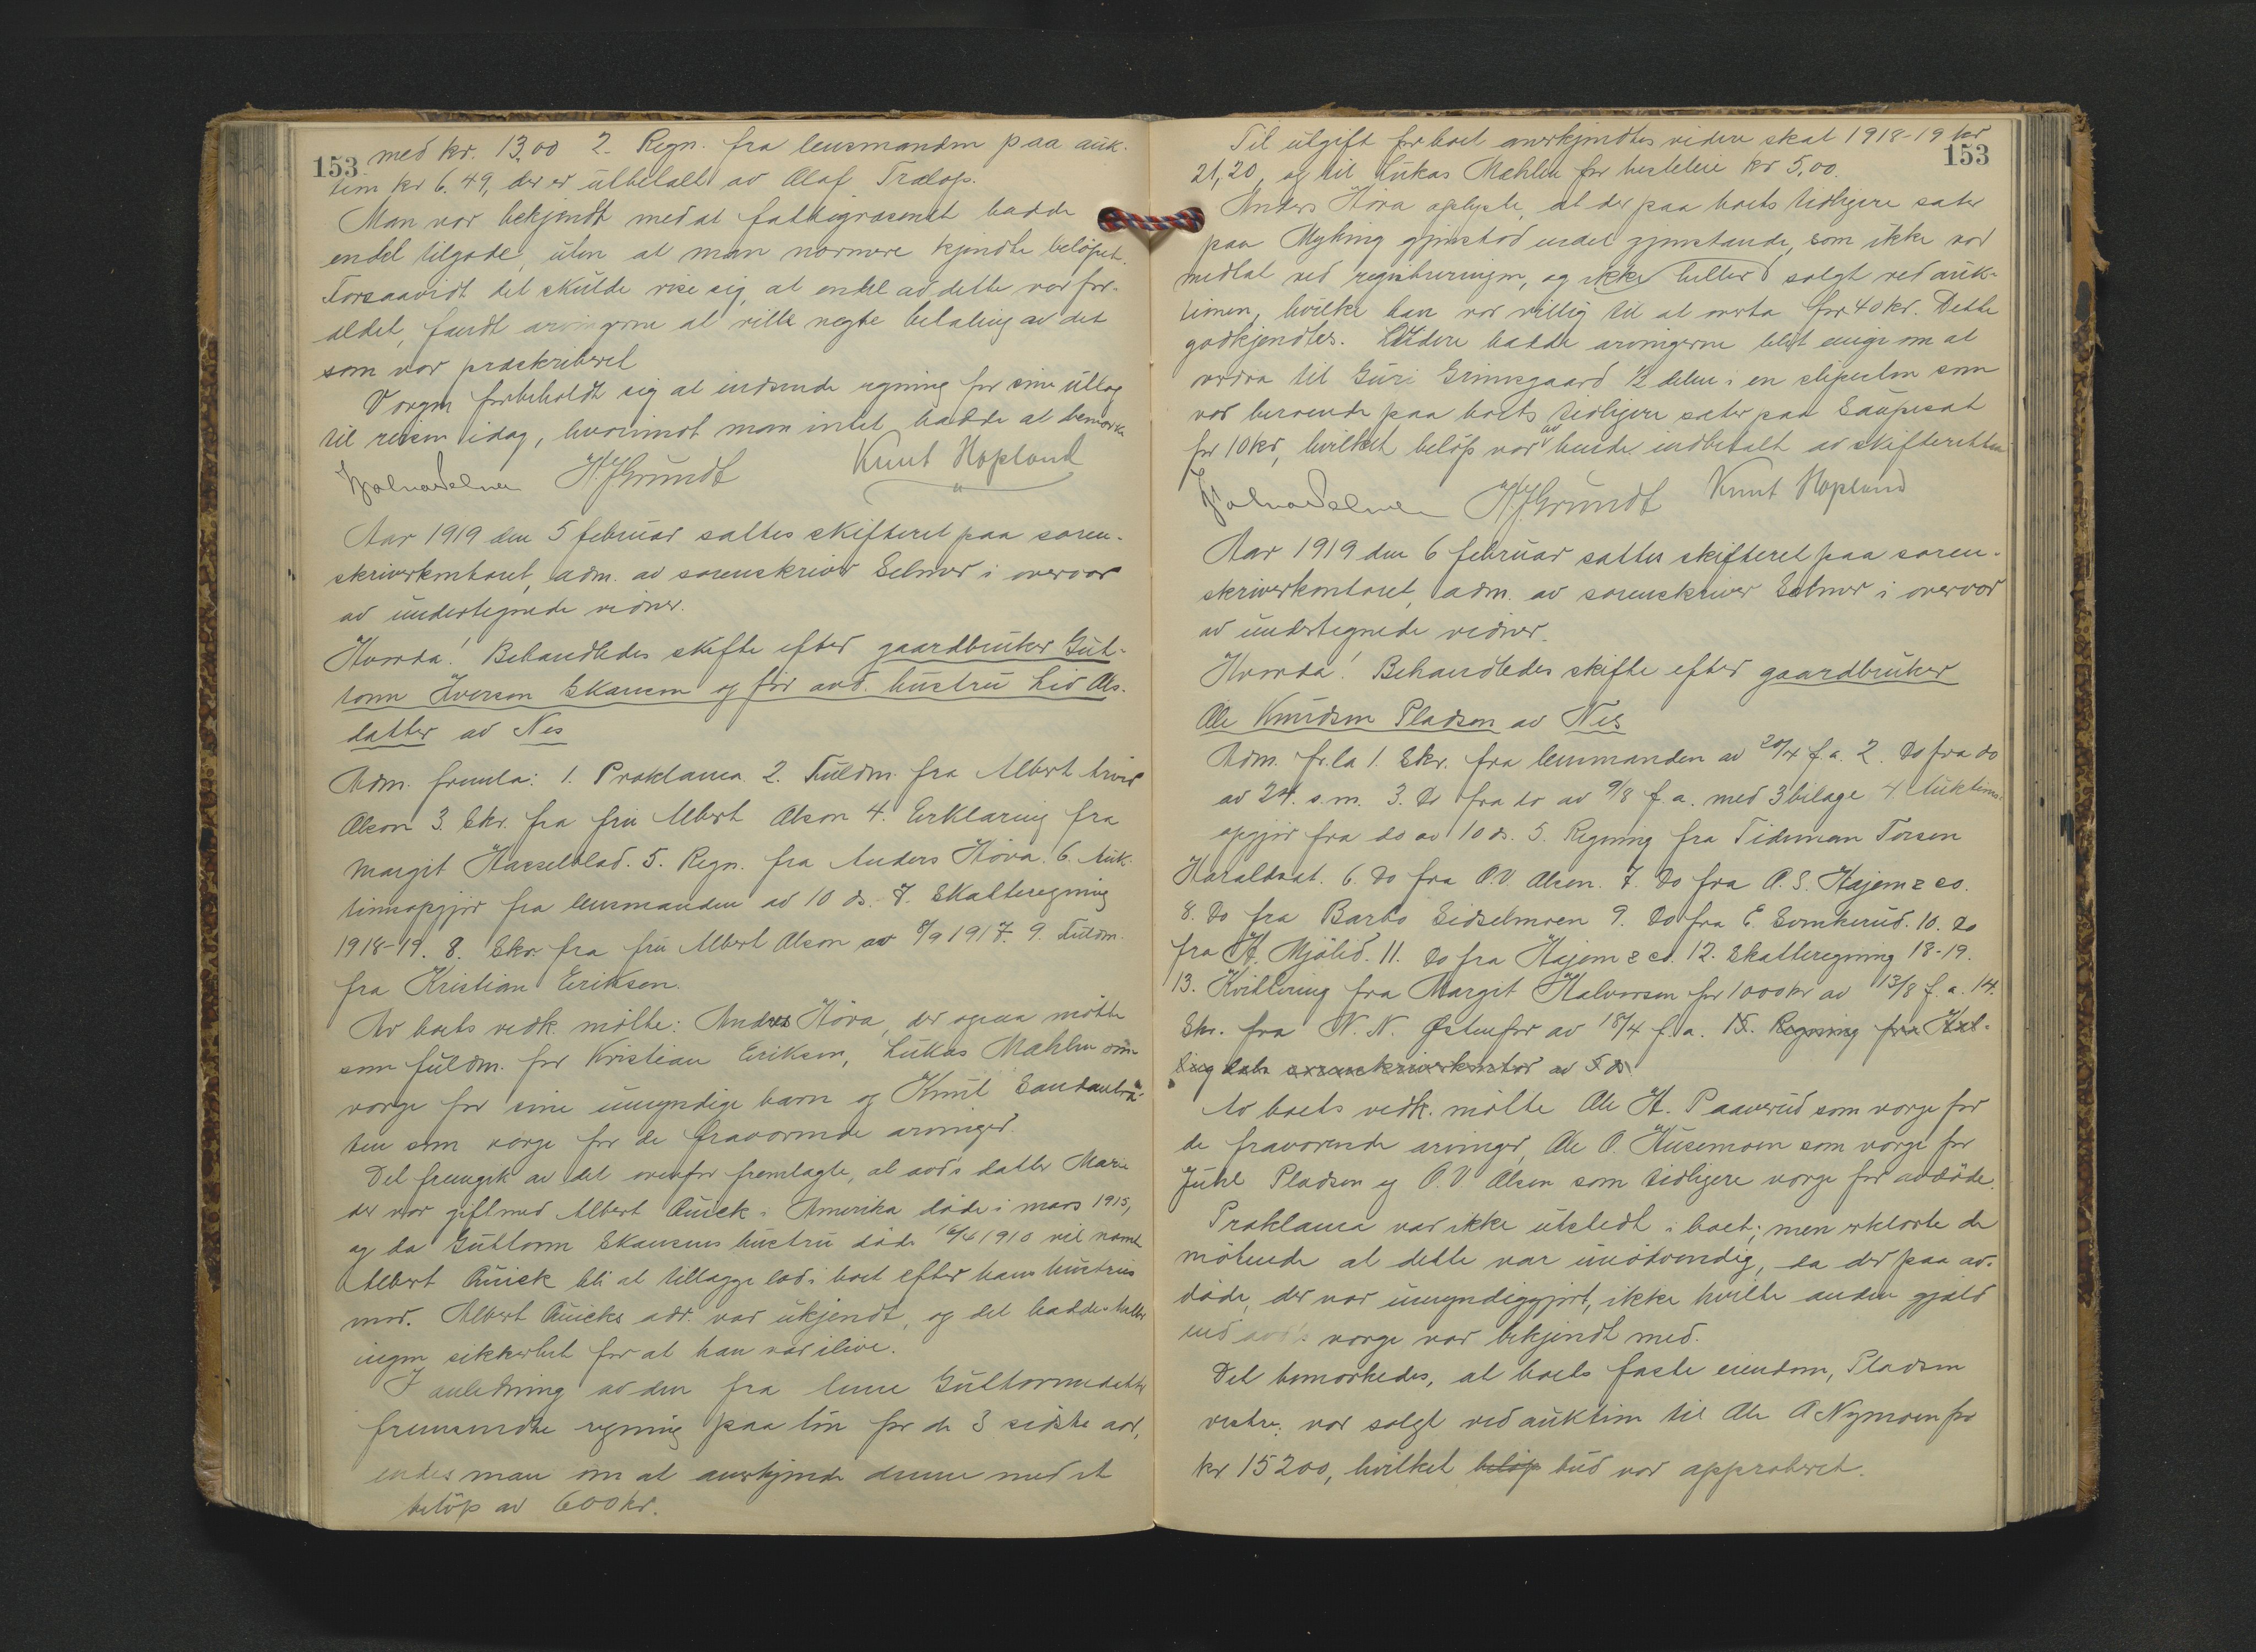 153
med kr. 13,00 2. Regn. fra lensmanden paa auk-
tion kr 6.49, der er utbetalt av Olaf Trælop.
Man var bekjendt med at fattigvæsenet hadde
endel tilgode, uten at man nærmere kjendte beløpet.
Forsaavidt det skulde vise sig, at endel av dette var for-
ældet, fandt arvingerne at ville negte betaling av det
som var præskriberet
Vorgen forbeholdt sig at indsende regning for sine utlæg
til reisen idag, hvorimot man intet hadde at bemerke
Hj Grundt Knut Hopland
Aar 1919 den 5 februar sattes skifteret paa soren-
skriverkontoret, adm. av sorenskriver Selmer i overvær
av undertegnede vidner.
Hvorda! Behandledes skifte efter gaardbruker Gut-
torm Iversen Skansen og før avd. hustru Liv Ols-
datter av Nes
Adm. fremla: 1. Proklama 2. Fuldm. fra Albert Arvid
Olson 3. Skr. fra fru Albert Olson 4. Erklæring fra
Margit Hasselblad. 5. Regn. fra Anders Höva. 6. Auk-
tionsopgjør fra lensmanden av 10 ds. 7. Skatteregning
1918-19. 8. Skr. fra fru Albert Olson av 8/9 1917. 9. Fuldm.
fra Kristian Eriksen.
Av boets vedk. mötte: Anders Höva, der ogsaa mötte
som fuldm. for Kristian Eriksen, Lukas Mæhlen som
vorge for sine umyndige barn og Knut Sandaabrå-
ten som vorge for de fraværende arvinger.
Det fremgik av det ovenfor fremlagte, at avd's datter Marie
der var gift med Albert Quick i Amerika døde i mars 1915,
og da Guttorm Skansens hustru døde 16/6 1910 vil nævnte
Albert Quick bli at tillægge lod i boet efter hans hustrus
mor. Albert Quicks adr. var ukjendt, og det haddes heller
ingen sikkerhet for at han var ilive.
I anledning av den fra Guttormsdatter
fremsendte regning paa løn for de 3 sidste aar,
enedes man om at anerkjende denne med et
beløp av 600 kr.
153
Til utgift for boet anerkjendtes videre skat 1918-19 kr
21,20, og til Lukas Mæhlen for hesteleie kr 5,00.
Anders Höva oplyste, at der paa boets tidligere sæter
paa Myking gjenstod endel gjenstande, som ikke var
medtat ved registreringen, og ikke heller solgt ved auk-
tionen, hvilke han var villig til at overta for 40 kr. Dette
godkjendtes. Videre hadde arvingerne blit enige om at
overdra til Guri Grimsgaard 1/2 delen i en slipesten som
var beroende paa boets tidligere sæter paa Saupeset
for 10 kr, hvilket beløp var av hende indbetalt av skifteretten
Hj Grundt Knut Hopland
Aar 1919 den 6 februar sattes skifteret paa soren-
skriverkontoret, adm. av sorenskriver Selmer i overvær
av undertegnede vidner.
Hvorda! Behandledes skifte efter gaardbruker
Ole Knudsen Pladsen av Nes
Adm. fr.la 1. Skr. fra lensmanden av 20/4 f.a. 2. Do fra do
av 24. s.m. 3. Do fra do av 9/8 f.a. med 3 bilage 4. Auktions-
opgjør fra do av 10 ds. 5. Regning fra Tideman Torsen
Haraldset. 6. Do fra O.V. Olsen. 7. Do fra O.S. Hajem & co.
8. Do fra Barbo Sidselmoen 9. Do fra E. Svenkerud. 10. Do
fra H. Mjøled. 11. Do fra Hajem & co. 12. Skatteregning 18-19.
13. Kvittering fra Margit Halvorsen for 1000 kr av 13/8 f.a. 14.
Skr. fra N. N. Østenfor av 18/4 f.a. 15. Regning fra Hal-
lingdals sorenskriverkontor av 5 ds.
Av boets vedk. mötte Ole H. Paaverud som vorge for
de fraværende arvinger, Ole O. Husemoen som vorge for
Juhl Pladsen og O.V. Olsen som tidligere vorge for avdöde.
Proklama var ikke utstedt i boet; men erklærte de
mötende at dette var unödvendig, da der paa av-
döde, der var umyndiggjort, ikke hvilte anden gjæld
end avd's vorge var bekjendt med.
Det bemerkedes, at boets faste eiendom, Pladsen
vestre, var solgt ved auktion til Ole O Nymoen for
kr 15200, hvilket beløp bud var approberet.